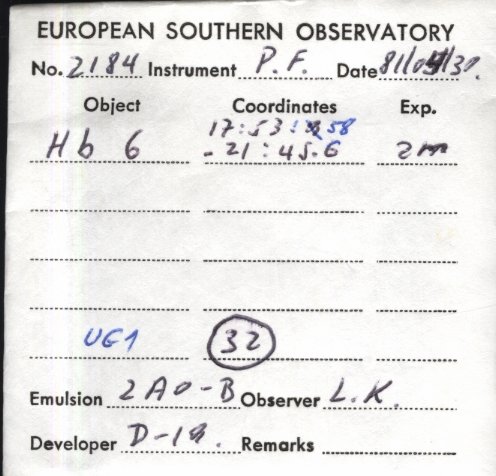 EUROPEAN SOUTHERN OBSERVATORY
No. 2184 Instrument P.F. Date 81/05/30.
Object Coordinates Exp.
17:53:58
Hb 6 -21:45.6 2m
UG1 32
Emulsion 2A0-B Observer L.K.
Developer D-19. Remarks